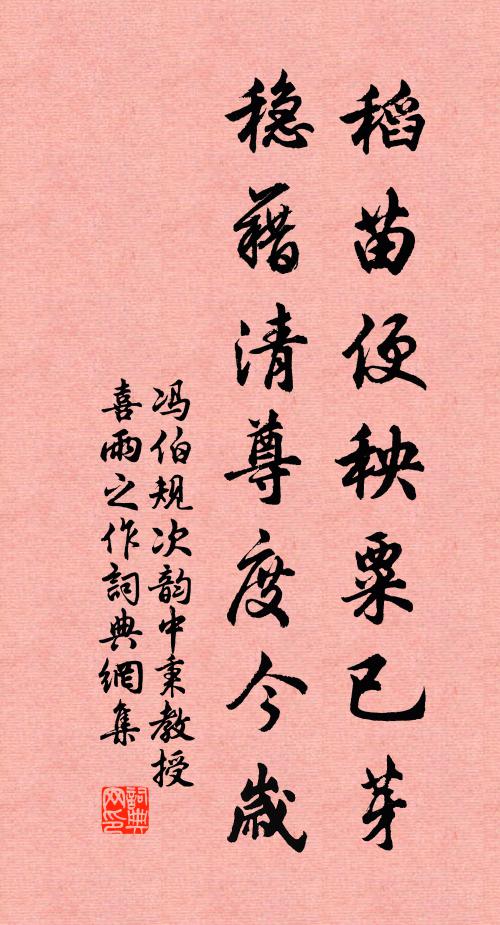 稻苗便秧粟已芽
穩藉清尊度今歲
冯伯规次韵中秉教授
喜雨之作詞典網集
詞典網印